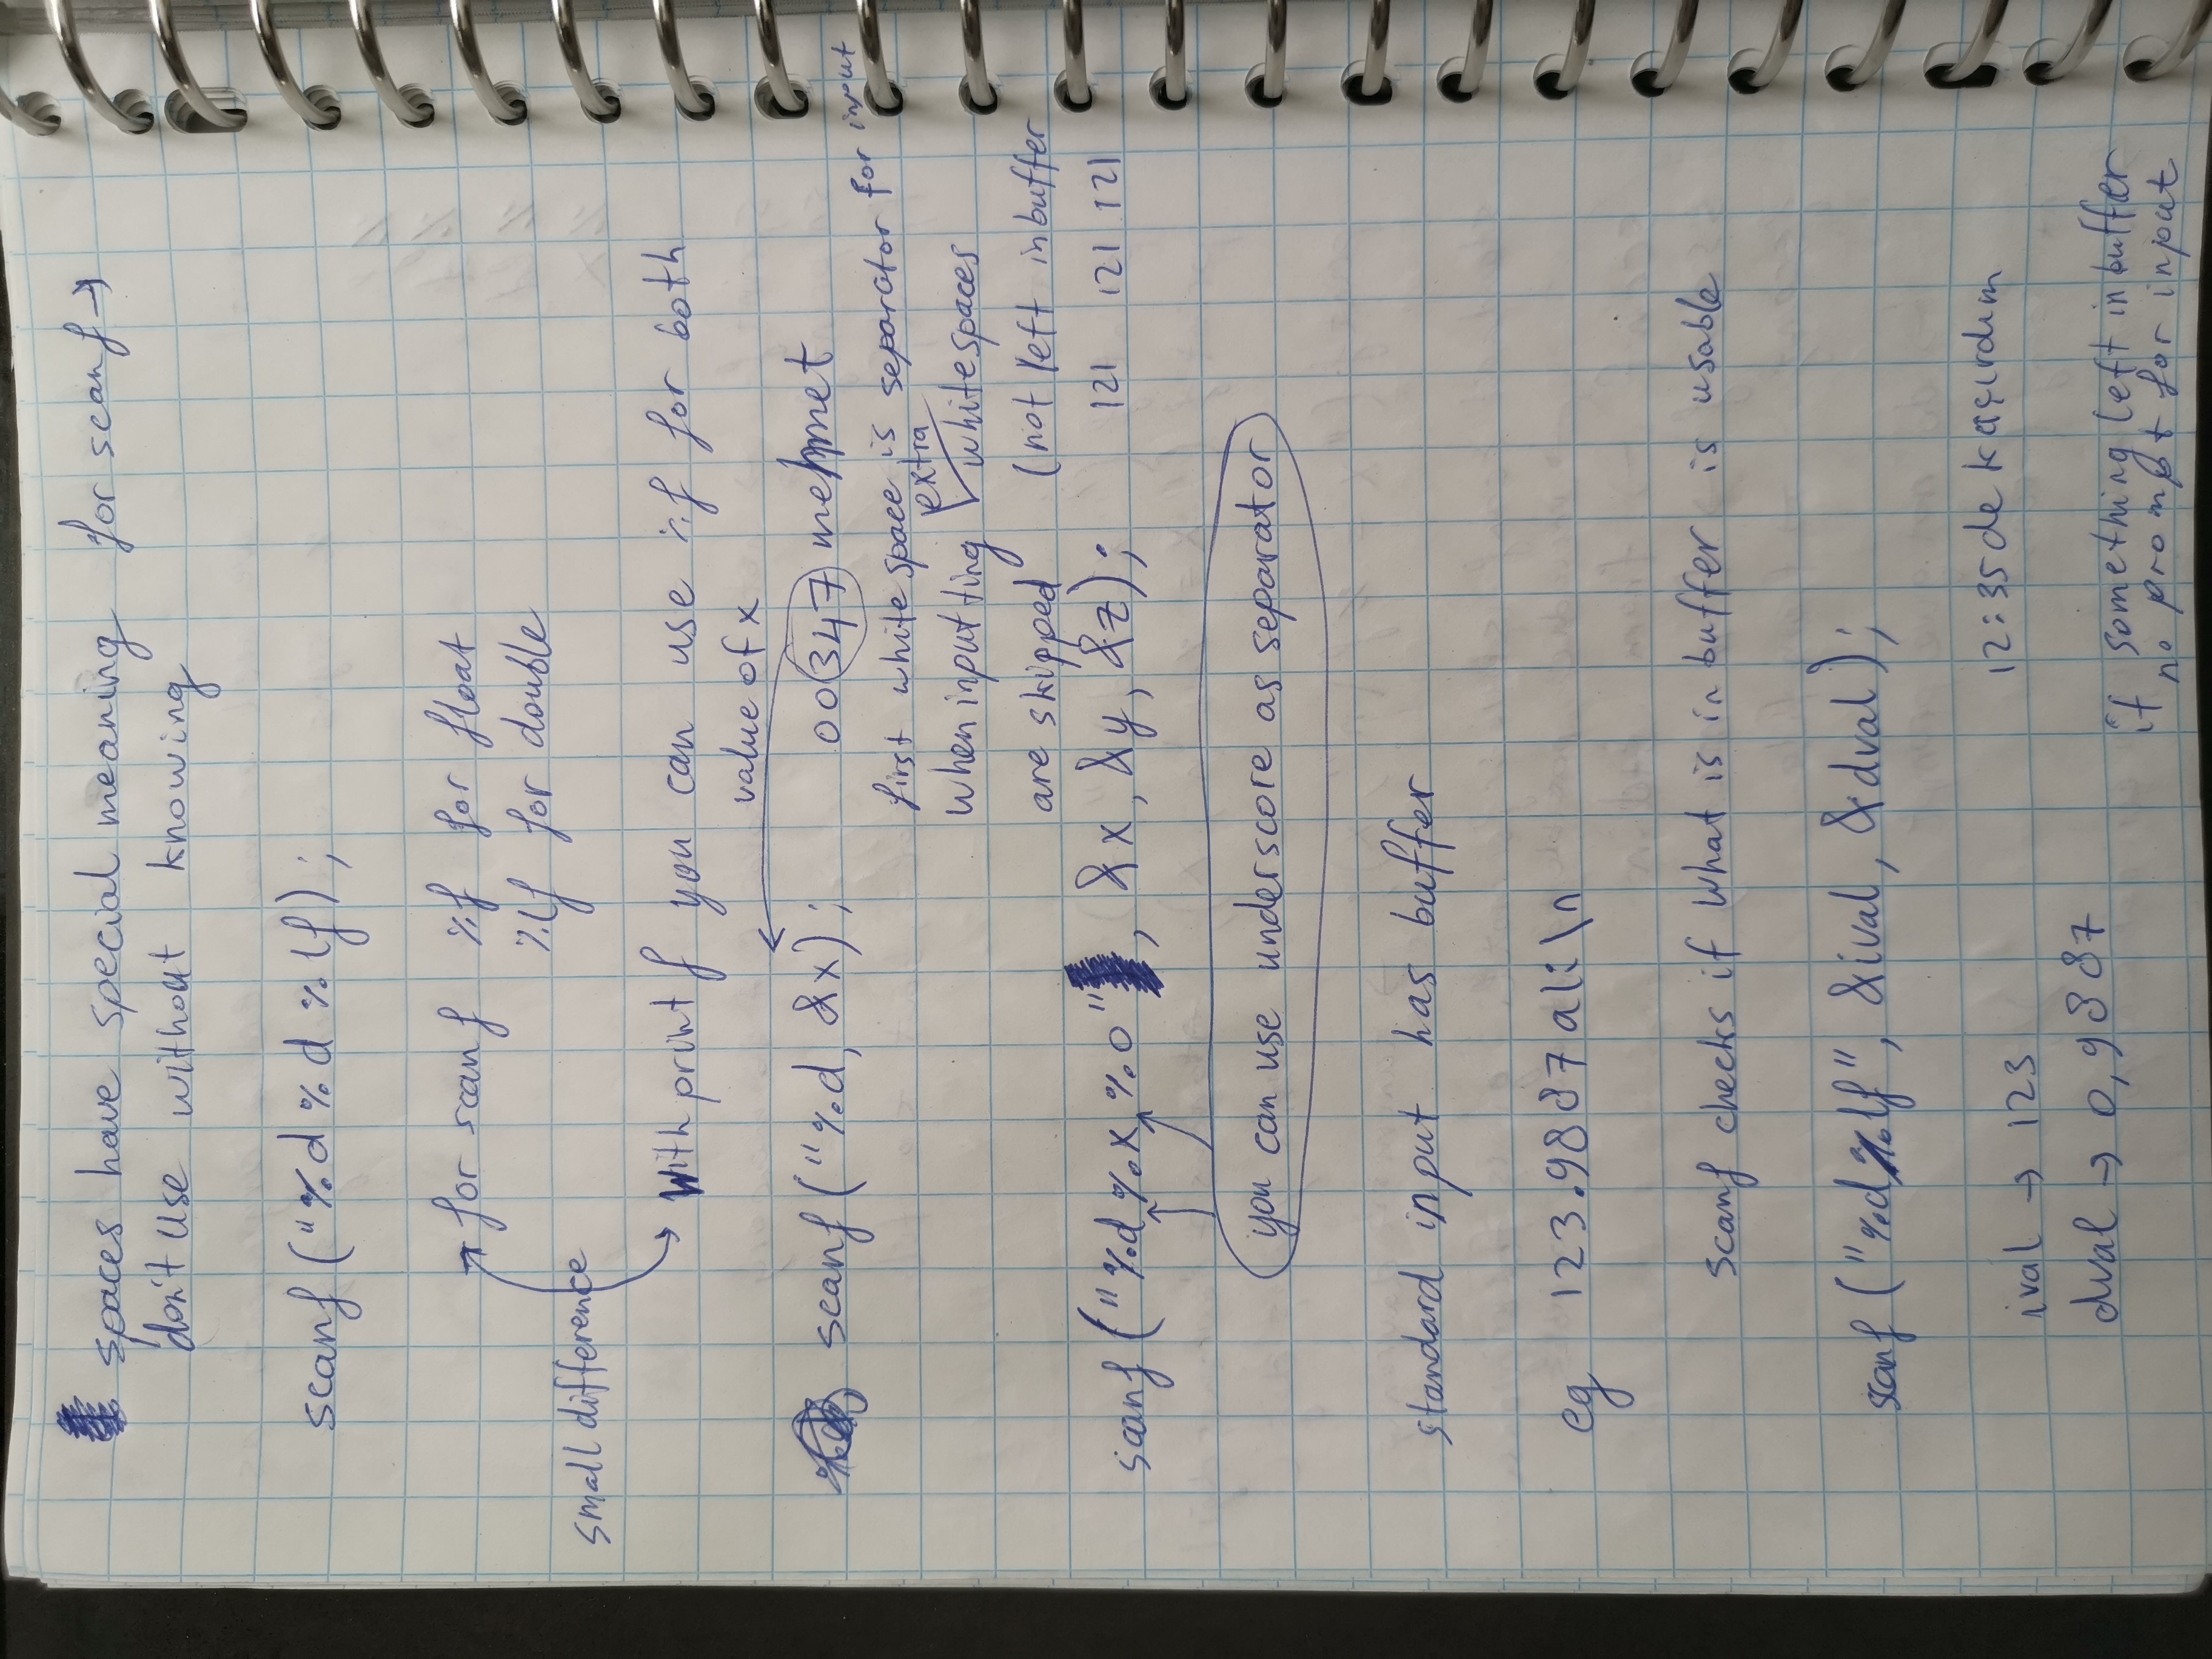 spaces have special meaning for scanf →
don't use without knowing
scanf ("%d %d %lf);
→ for scanf %f for float
%lf for double
small difference
→ With printf you can use %f for both
value of x
scanf ("%d, &x); 00347 mehmet
first white space is separator for input
when inputting extra whitespaces
are skipped (not left in buffer
scanf ("%d_%x_%o", &x, &y, &z); 121 121 121
you can use underscore as separator
standard input has buffer
eg 123.9887ali\n
scanf checks if what is in buffer is usable
scanf ("%d%lf", &ival, &dval);
12:35 de kaçırdım
ival → 123
dval → 0,9887
if something left in buffer
no prompt for input